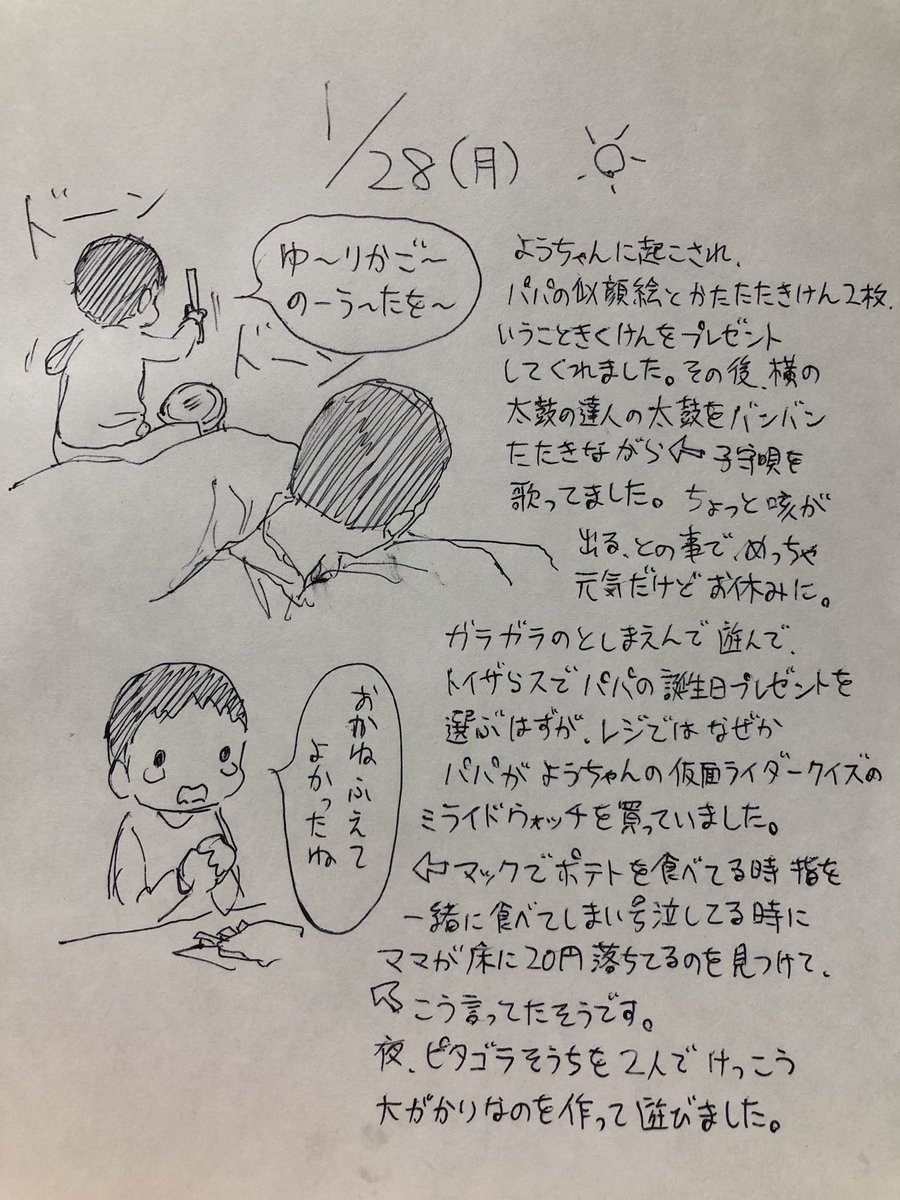 1/28(月)
ドーン
ゆ〜りかご〜
のーう〜たを〜
ドーン
ようちゃんに起こされ、
パパの似顔絵とかたたたきけん2枚、
いうこときくけんをプレゼント
してくれました。その後、横の
太鼓の達人の太鼓をバンバン
たたきながら⇦子守唄を
歌ってました。ちょっと咳が
出る、との事で、めっちゃ
元気だけどお休みに。
ガラガラのとしまえんで遊んで、
トイザらスでパパの誕生日プレゼントを
選ぶはずが、レジではなぜか
パパがようちゃんの仮面ライダークイズの
ミライドウォッチを買っていました。
おかねふえて
よかったね
⇦マックでポテトを食べてる時指を
一緒に食べてしまい号泣してる時に
ママが床に20円落ちてるのを見つけて、
⇦こう言ってたそうです。
夜、ピタゴラそうちを2人でけっこう
大がかりなのを作って遊びました。